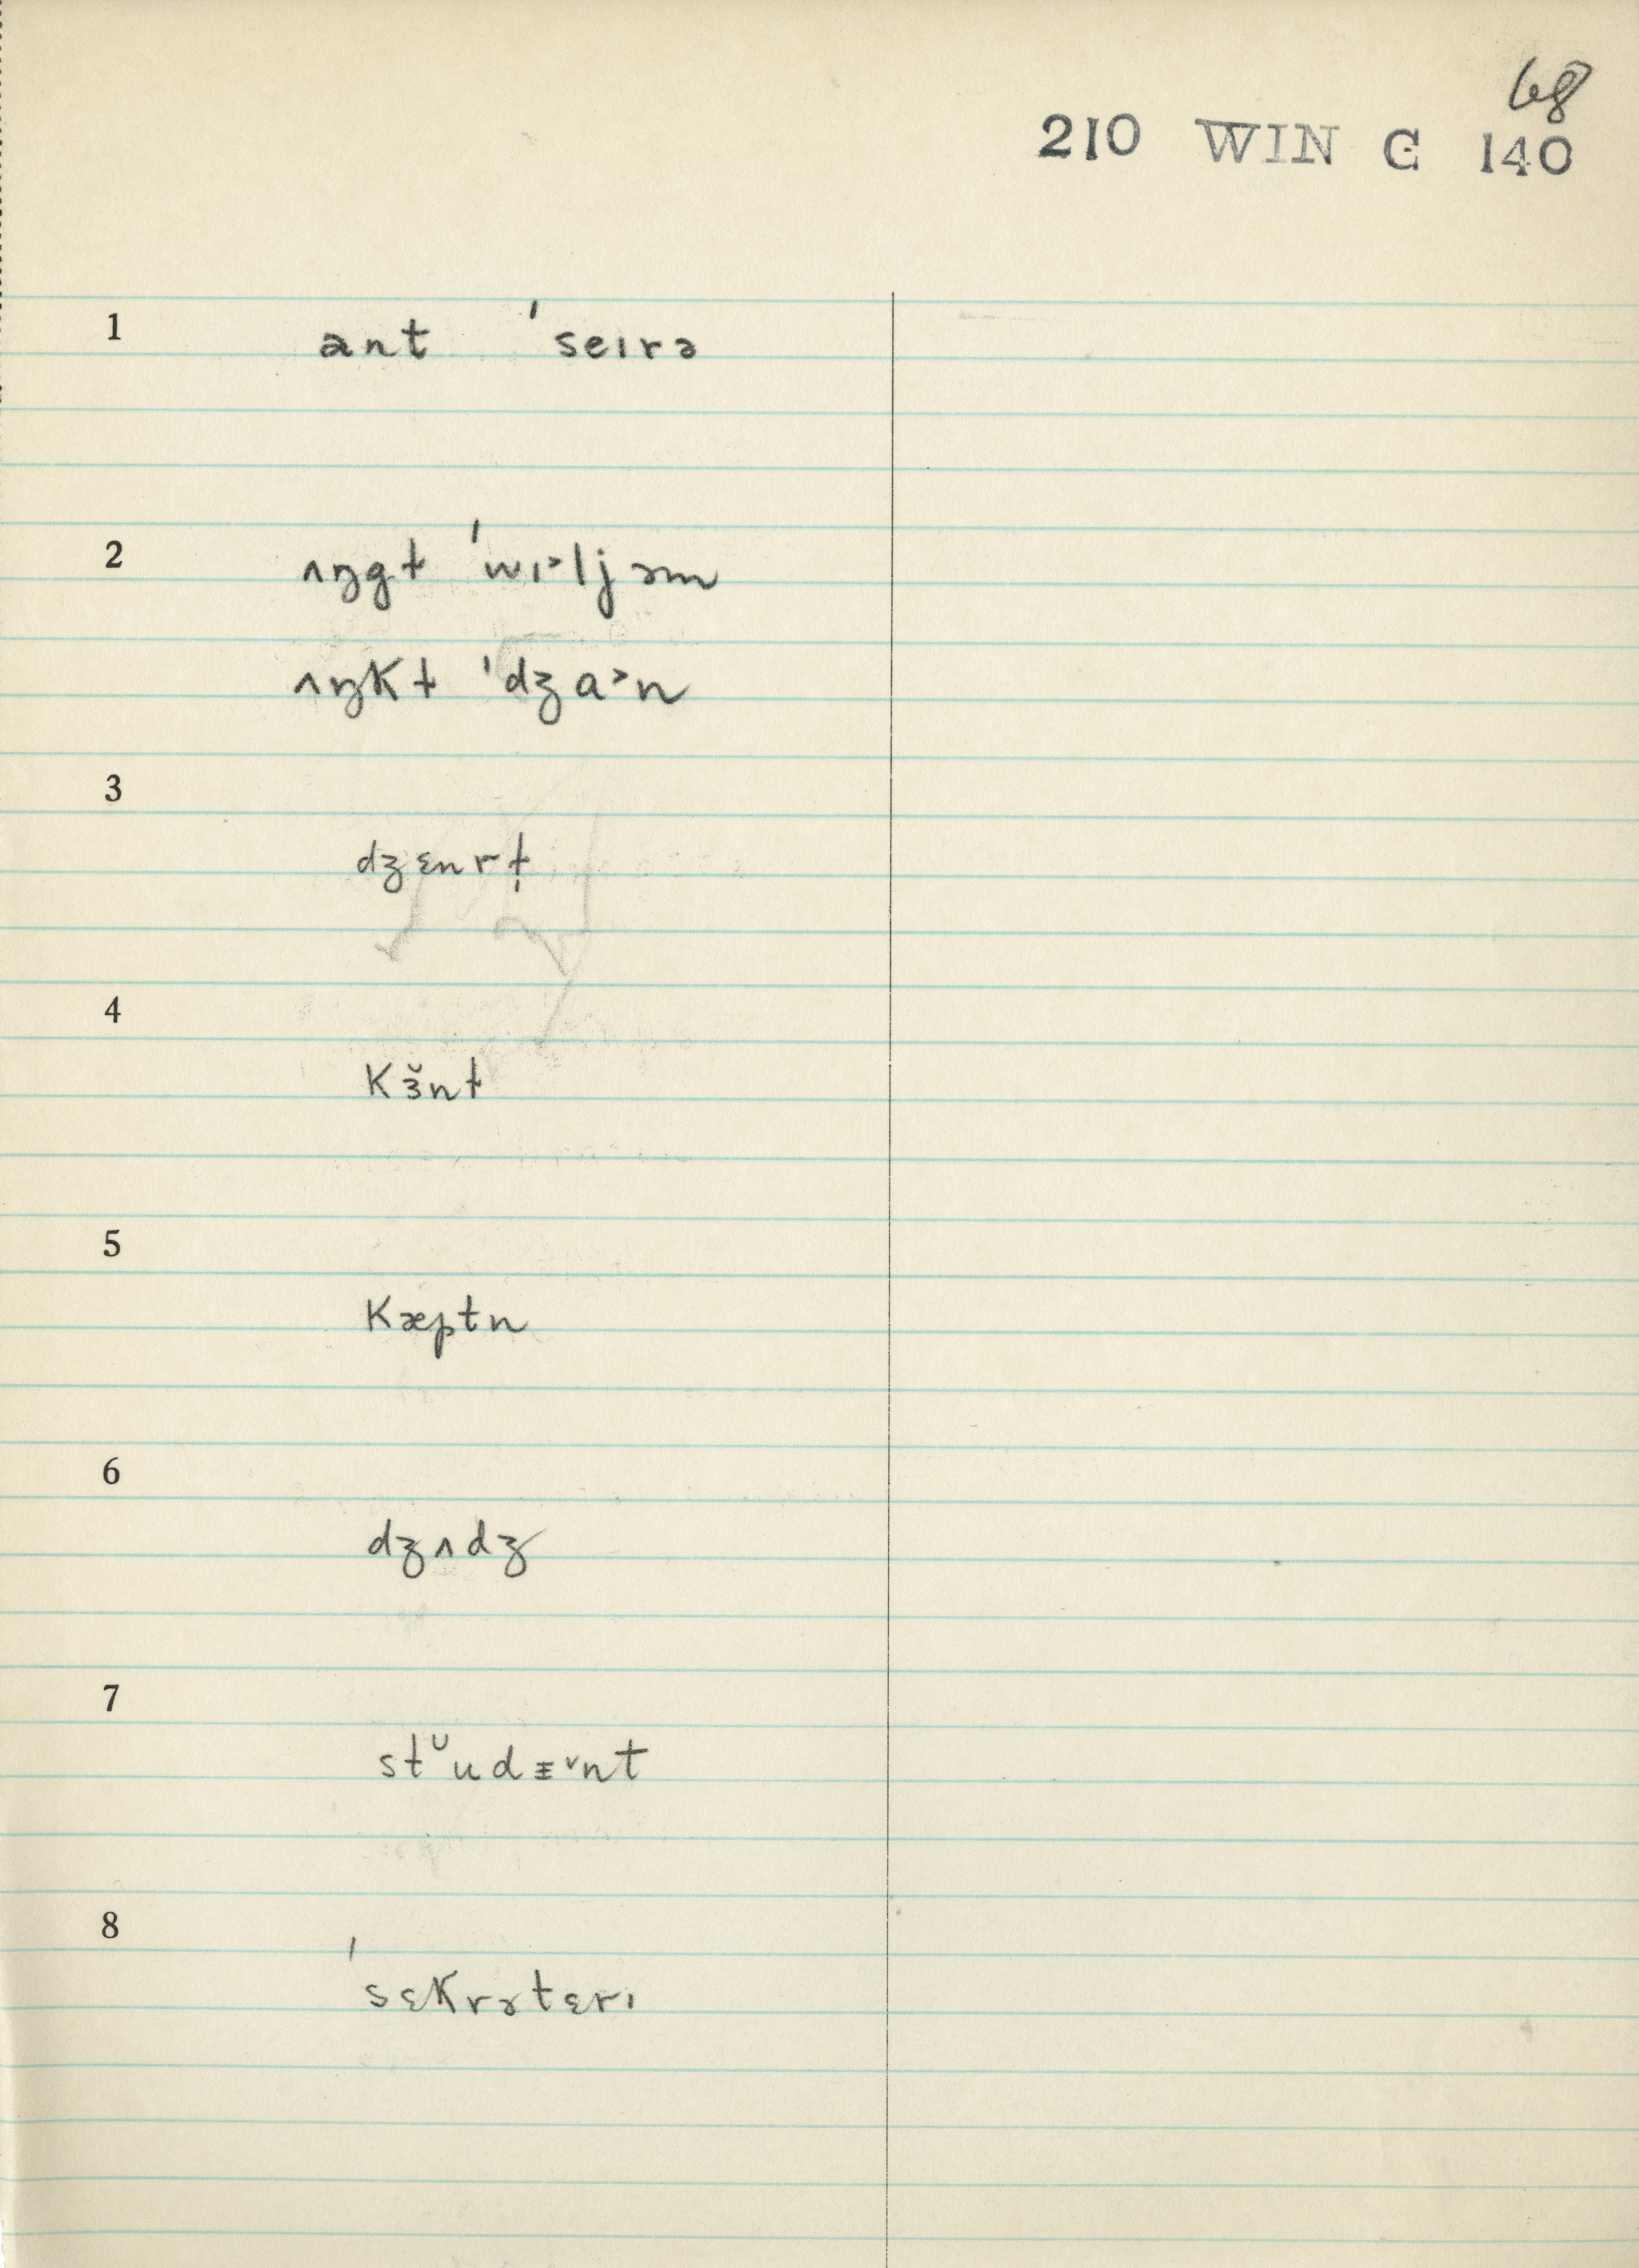 68
210 WIN C 140
1 ant ˈseɪrə
2 ʌŋgɫ ˈwɪ˃ljəm
ʌŋkɫ ˈdʒa˃n
3
dʒɛnrɫ̩
4
kɜ̆nɫ
5
kæptn
6
dʒʌdʒ
7
8
ˈsɛkrətɛrɪ